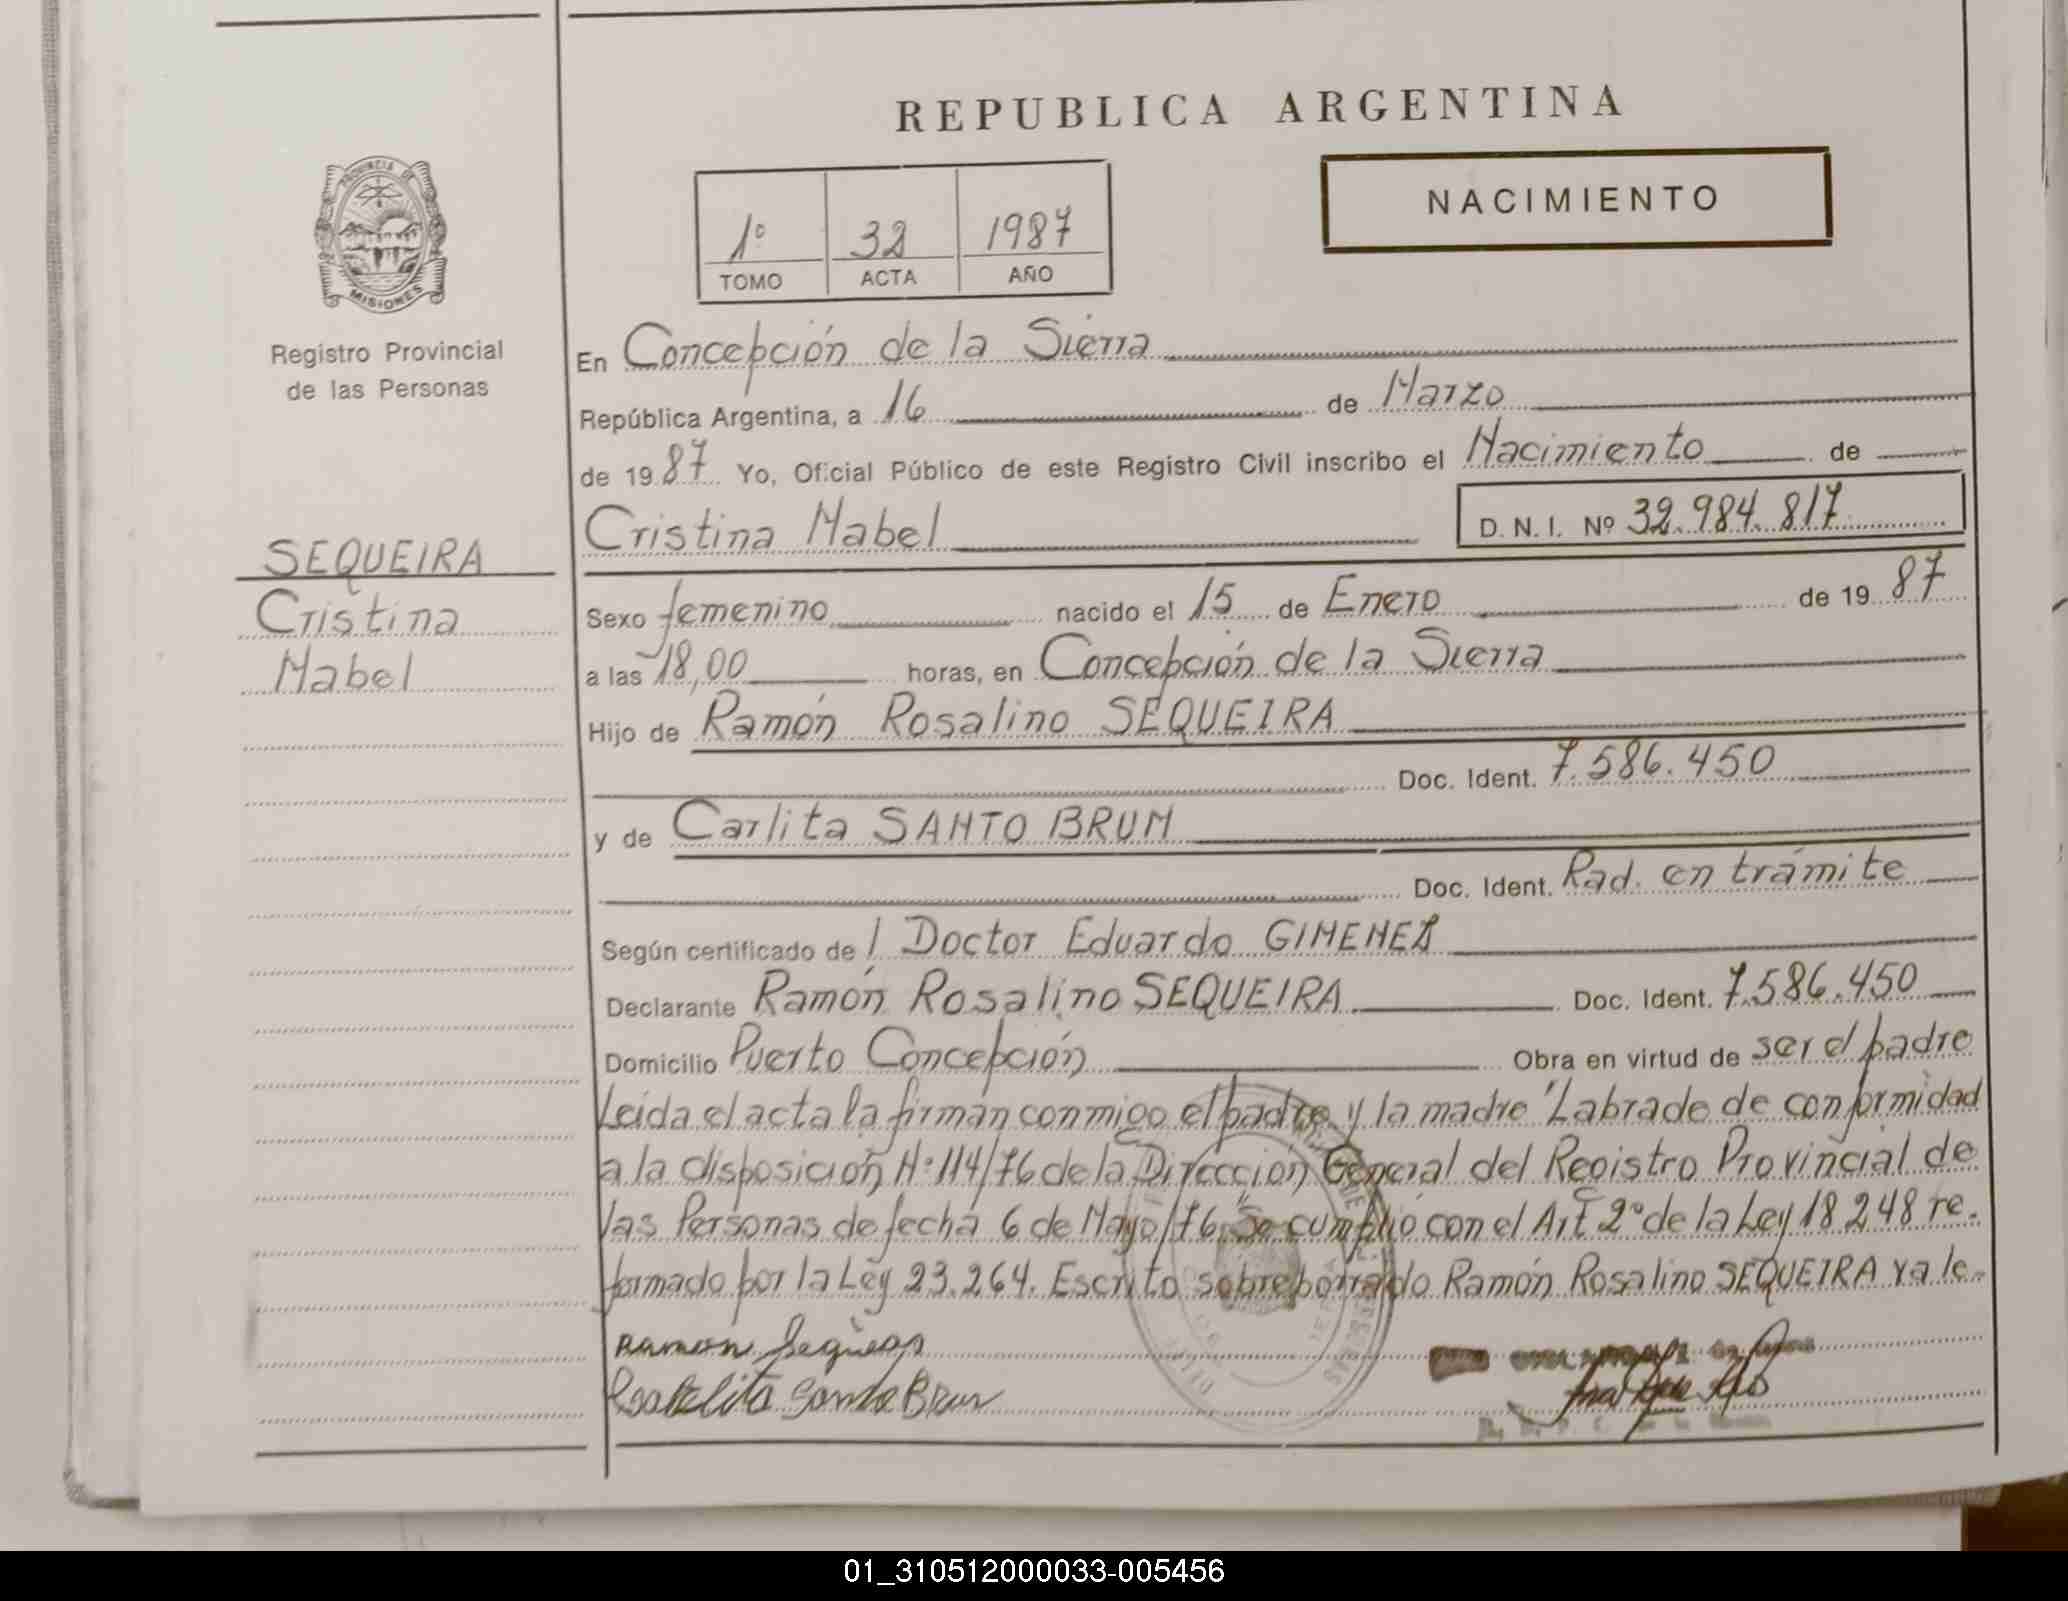 REPUBLICA ARGENTINA
PROVINCIA DE
MISIONES
Registro Provincial
de las Personas
NACIMIENTO
1º 32 1987
TOMO ACTA AÑO
En Concepción de la Sierra
República Argentina, a 16 de Marzo
de 1987 Yo, Oficial Público de este Registro Civil inscribo el Nacimiento de
Cristina Mabel D. N. I. Nº 32.984.817
SEQUEIRA
Cristina
Mabel
Sexo femenino nacido el 15 de Enero de 1987
a las 18,00 horas, en Concepción de la Sierra
Hijo de Ramón Rosalino SEQUEIRA
Doc. Ident. 7.586.450
y de Carlita SANTO BRUN
Doc. Ident. Rad. en trámite
Según certificado de l Doctor Eduardo GIMENEZ
Declarante Ramón Rosalino SEQUEIRA Doc. Ident. 7.586.450
Domicilio Puerto Concepción Obra en virtud de ser el padre
Leída el acta la firman conmigo el padre y la madre "Labrade de conformidad
a la disposición Nº 114/76 de la Dirección General del Registro Provincial de
las Personas de fecha 6 de Mayo/76" Se cumplió con el Art 2º de la Ley 18.248 re-
formado por la Ley 23.264. Escrito sobreborrado Ramón Rosalino SEQUEIRA vale.
Ramon
Santo Brun
01_310512000033-005456